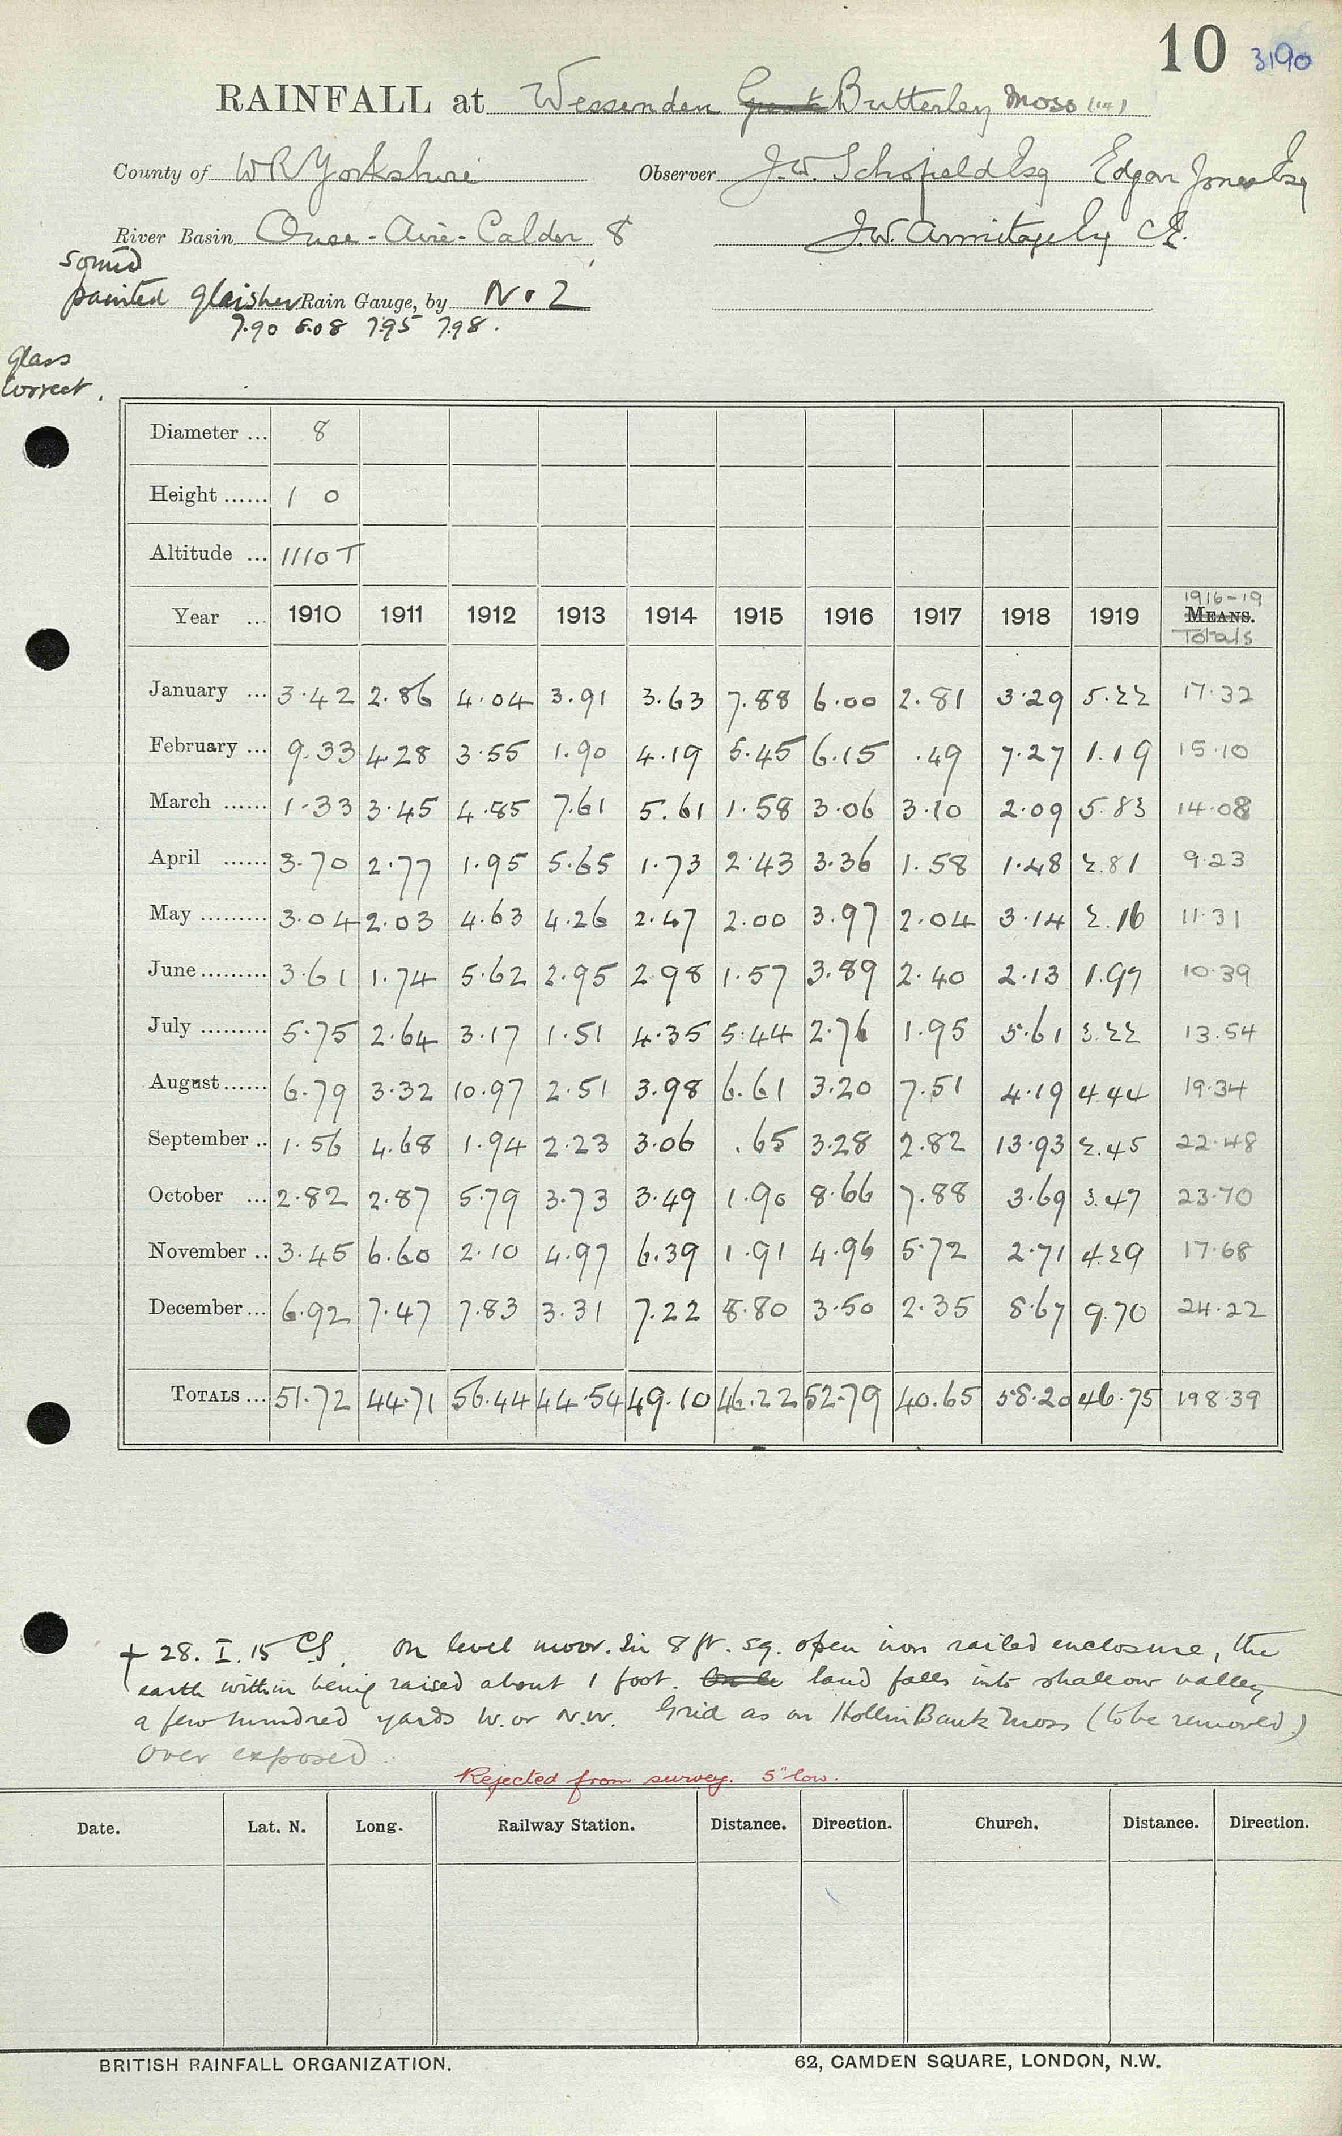 10 3190
RAINFALL at Wessenden Great Butterley Moss (1a)
County of WR Yorkshire Observer J.W. Schofield Esq Edgar Jones Esq
River Basin Ouse - Aire - Calder 8 J.W. Armitage Esq CE.
sound
painted glaisher Rain Gauge, by No 2
7.90 8.08 7.95 7.98.
glass
correct.
Diameter ... 8
Height ...... 1 0
Altitude ... 1110 T
1916-19
Year ... 1910 1911 1912 1913 1914 1915 1916 1917 1918 1919 MEANS.
Totals
January ... 3.42 2.86 4.04 3.91 3.63 7.88 6.00 2.81 3.29 5.22 17.32
February ... 9.33 4.28 3.55 1.90 4.19 5.45 6.15 .49 7.27 1.19 15.10
March ...... 1.33 3.45 4.85 7.61 5.61 1.58 3.06 3.10 2.09 5.83 14.08
April ...... 3.70 2.77 1.95 5.65 1.73 2.43 3.36 1.58 1.48 2.81 9.23
May ......... 3.04 2.03 4.63 4.26 2.47 2.00 3.97 2.04 3.14 2.16 11.31
June ......... 3.61 1.74 5.62 2.95 2.98 1.57 3.89 2.40 2.13 1.97 10.39
July ......... 5.75 2.64 3.17 1.51 4.35 5.44 2.76 1.95 5.61 3.22 13.54
August ...... 6.79 3.32 10.97 2.51 3.98 6.61 3.20 7.51 4.19 4.44 19.34
September .. 1.56 4.68 1.94 2.23 3.06 .65 3.28 2.82 13.93 2.45 22.48
October ... 2.82 2.87 5.79 3.73 3.49 1.90 8.66 7.88 3.69 3.47 23.70
November .. 3.45 6.60 2.10 4.97 6.39 1.91 4.96 5.72 2.71 4.29 17.68
December ... 6.92 7.47 7.83 3.31 7.22 8.80 3.50 2.35 8.67 9.70 24.22
TOTALS ... 51.72 44.71 56.44 44.54 49.10 46.22 52.79 40.65 58.20 46.75 198.39
+ 28. I. 15 CS. On level moor. In 8 ft. sq. open iron railed enclosure, the
earth within being raised about 1 foot. land falls into shallow valley
a few hundred yards W. or N.W. Grid as on Hollin Bank Moss (to be removed)
Over exposed.
Rejected from survey. 5" low.
Date. Lat. N. Long. Railway Station. Distance. Direction. Church. Distance. Direction.
BRITISH RAINFALL ORGANIZATION. 62, CAMDEN SQUARE, LONDON, N.W.